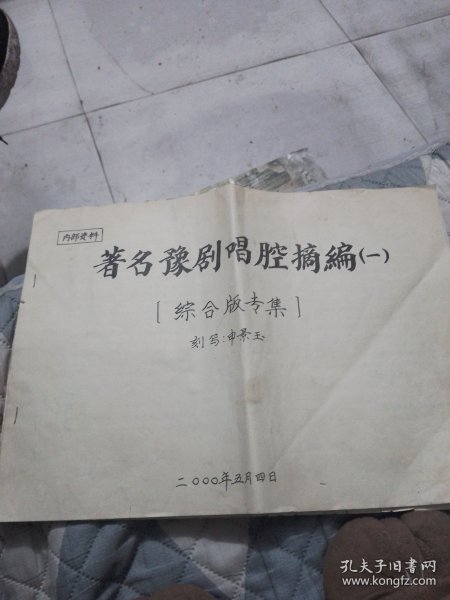 内部资料
著名豫剧唱腔摘编(一)
[综合版专集]
刻写:申景玉
二〇〇〇年五月四日
孔夫子旧书网
www.kongfz.com